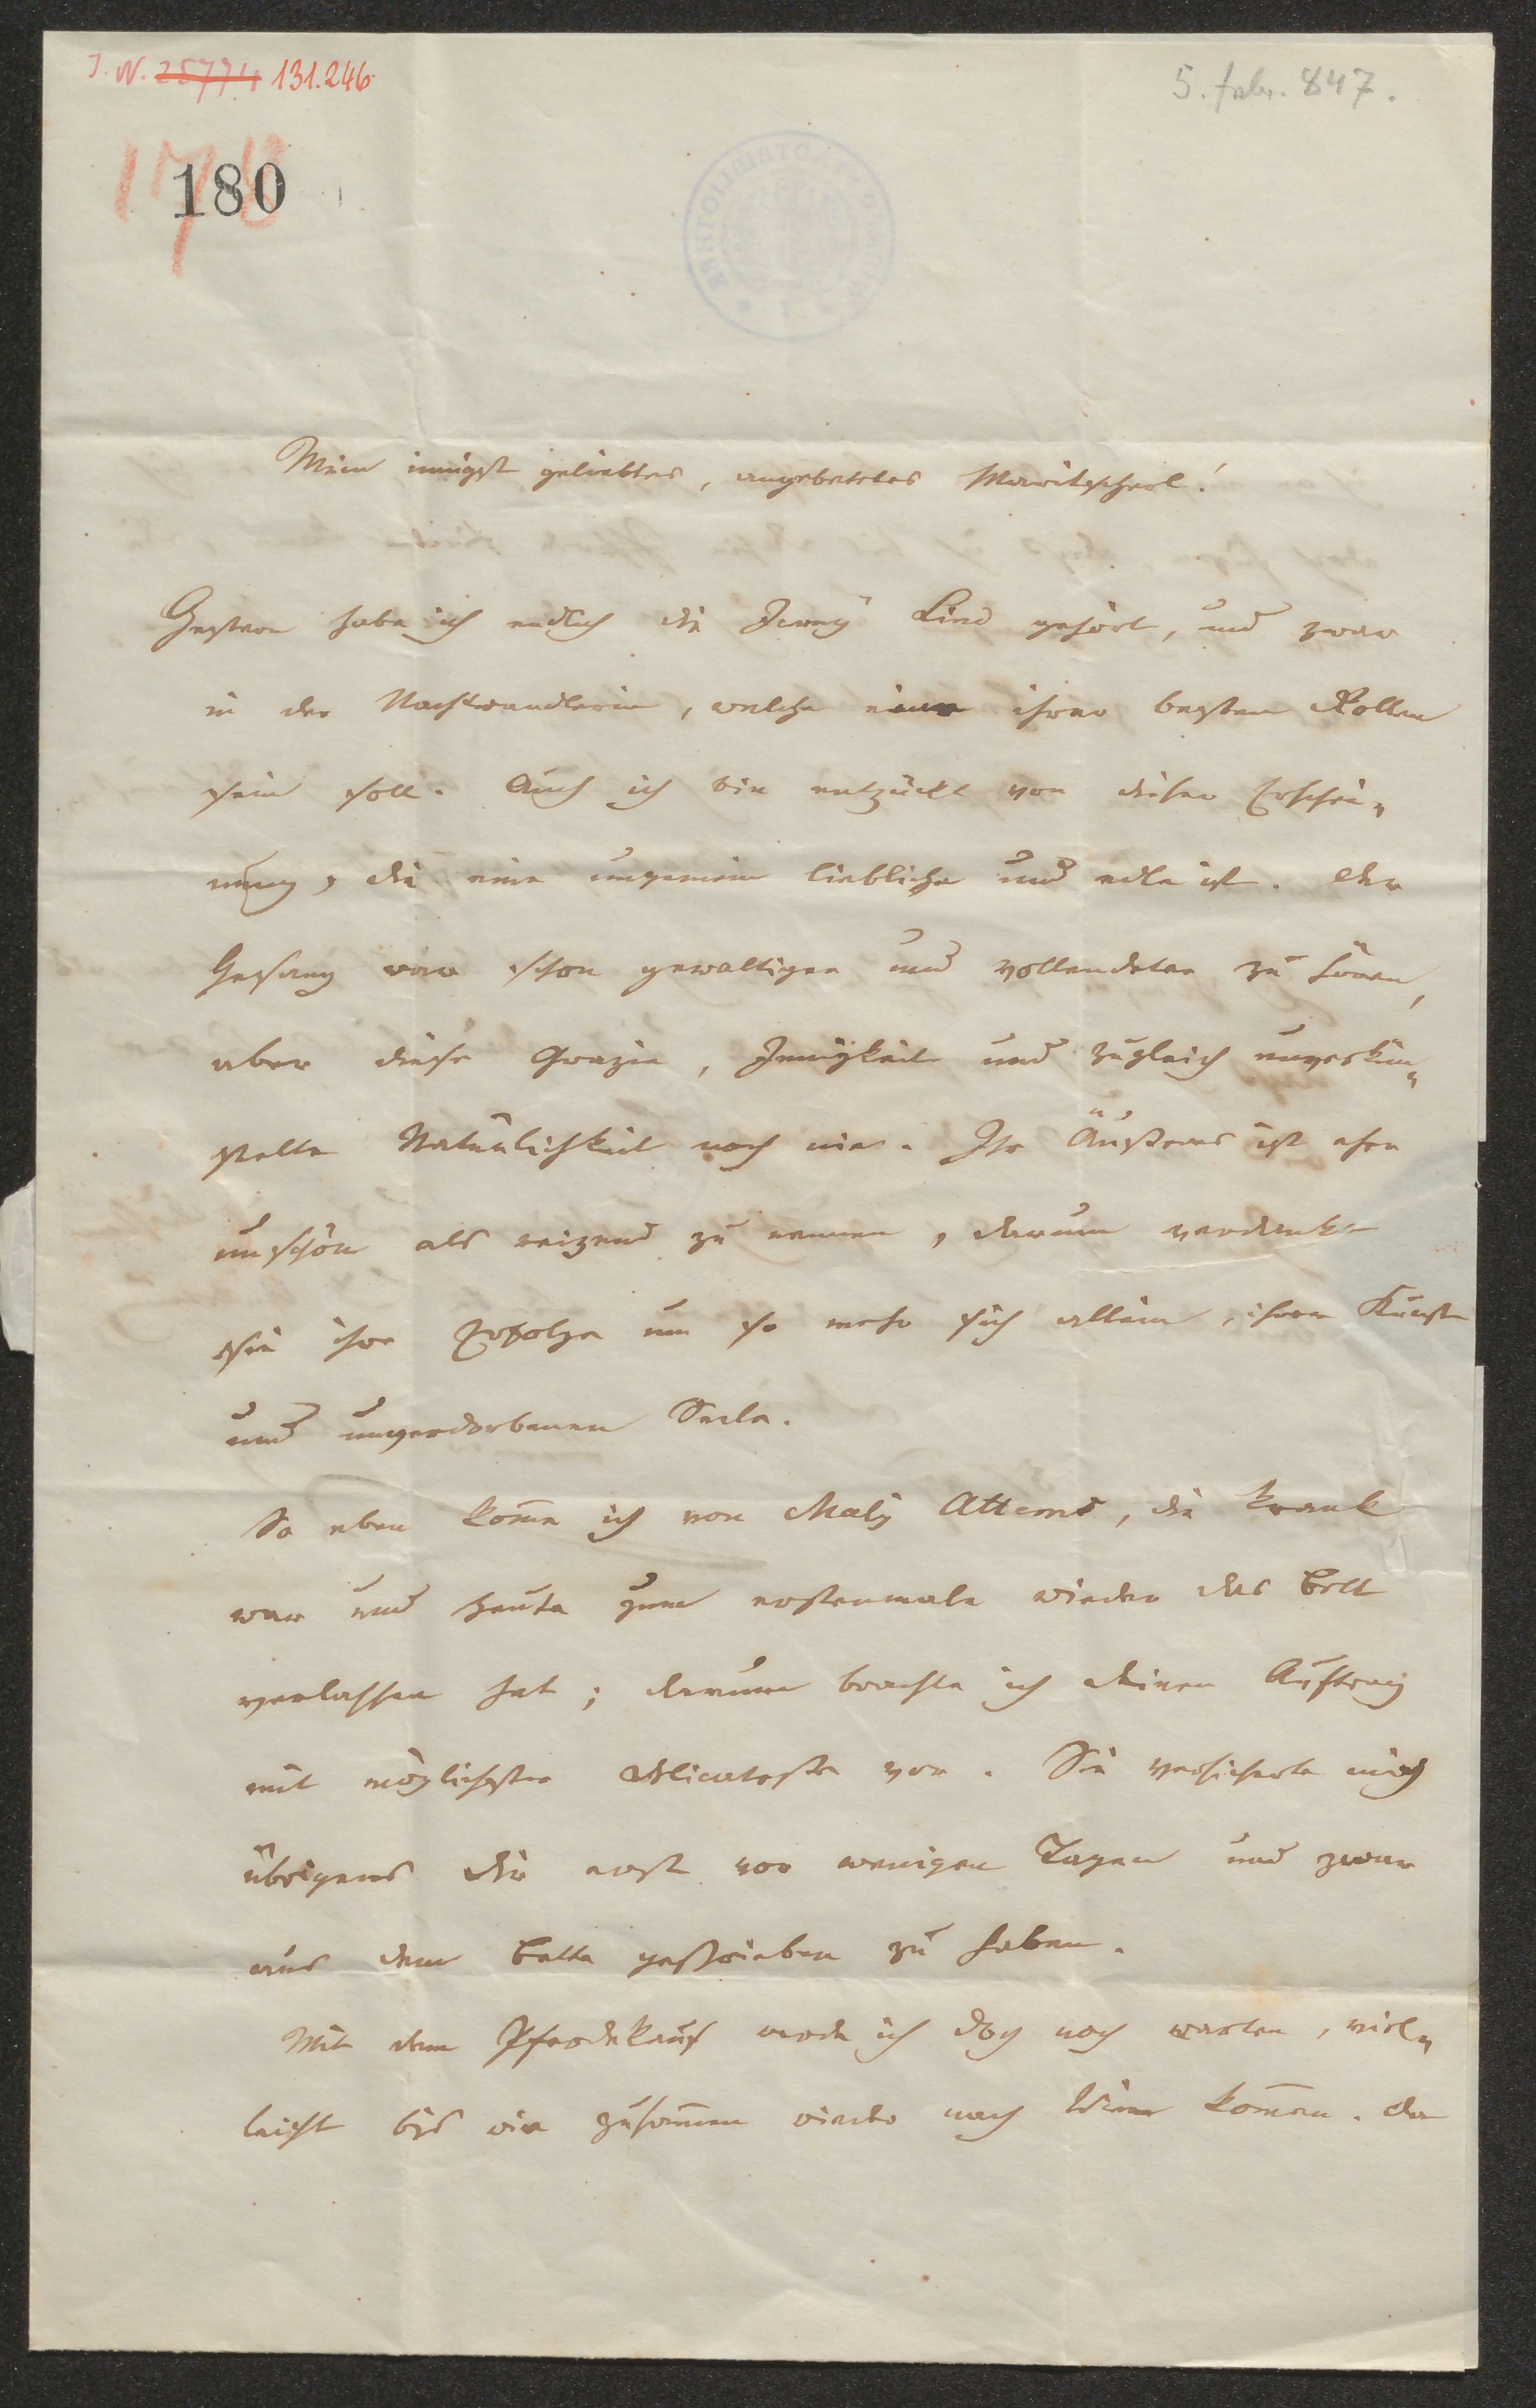 J. N. 25774 131.246.
5. febr. 847.
178
180
Mein innigst geliebtes, angebetetes Maritscherl!
Gestern habe ich endlich die Jenny Lind gehört, und zwar
in der Nachtwandlerin, welche eine ihrer besten Rollen
sein soll. Auch ich bin entzückt von dieser Erschei„
nung, die eine ungemein liebliche und edle ist. Der
Gesang war schon gewaltiger und vollendeter zu hören,
aber diese Grazie, Innigkeit und zugleich ungeskün„
stelte Natürlichkeit noch nie. Ihr Äußeres ist eher
unschön als reizend zu nennen, darum verdankt
sie ihre Erfolge um so mehr sich allein, ihrer Kunst
und unverdorbenen Seele.
So eben kom̅e ich von Maly Attems, die krank
war und heute zum erstenmale wieder das Bett
verlassen hat; darum brachte ich deinen Auftrag
mit möglichster Delicatesse vor. Sie versicherte mich
übrigens dir erst vor wenigen Tagen und zwar
aus dem Bette geschrieben zu haben.
Mit dem Pferdekauf werde ich doch noch warten, viel„
leicht bis wir zusam̅en wieder nach Wien kom̅en. Der